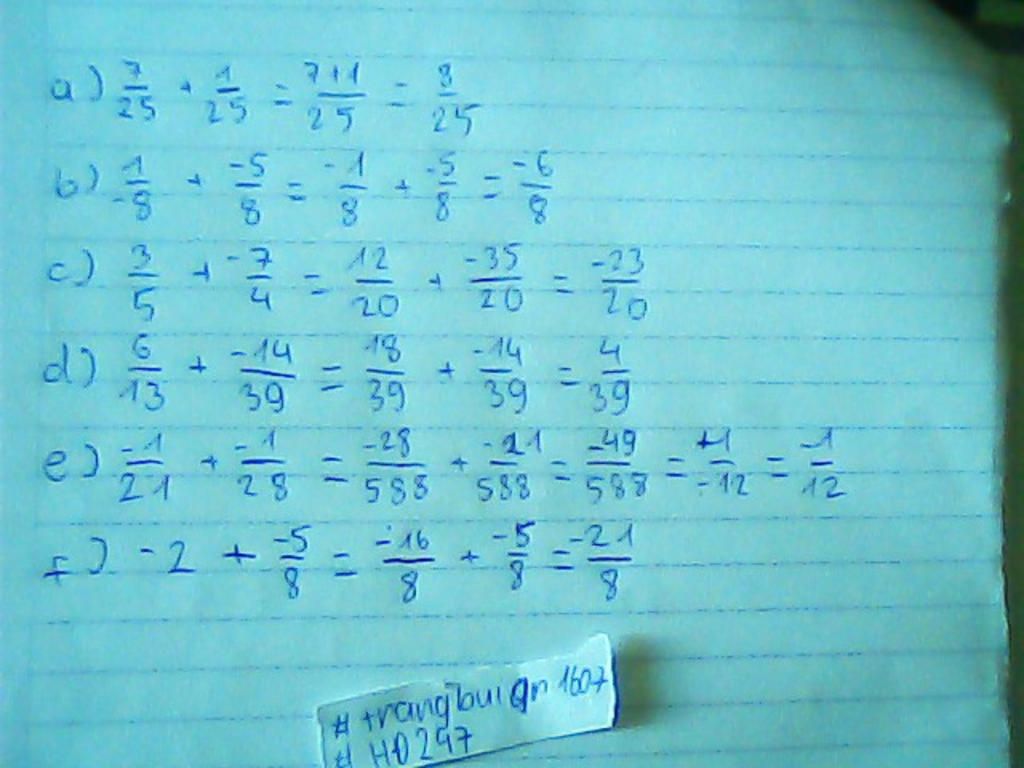 a) 7/25 + 1/25 = 7+1/25 = 8/25
b) 1/-8 + -5/8 = -1/8 + -5/8 = -6/8
c) 3/5 + -7/4 = 12/20 + -35/20 = -23/20
d) 6/13 + -14/39 = 18/39 + -14/39 = 4/39
e) -1/21 + -1/28 = -28/588 + -21/588 = -49/588 = +1/-12 = -1/12
f) -2 + -5/8 = -16/8 + -5/8 = -21/8
# trangbuiqn1607
# HD247